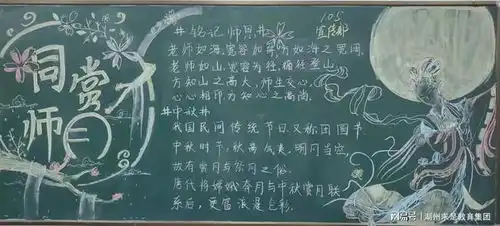 同赏
师月
#铭记师恩#
105
宣传部
老师如海,宽容如海,方知海之宽阔.
老师如山,宽容为径,循径登山,
方知山之高大,师生交心,
心心相印方知心之高尚.
#中秋#
我国民间传统节日又称团圆节
中秋时节,秋高气爽,明月当空,
故有赏月与祭月之俗.
唐代将嫦娥奔月与中秋赏月联
系后,更富浪漫色彩.
搜狐号@湖州来是教育集团